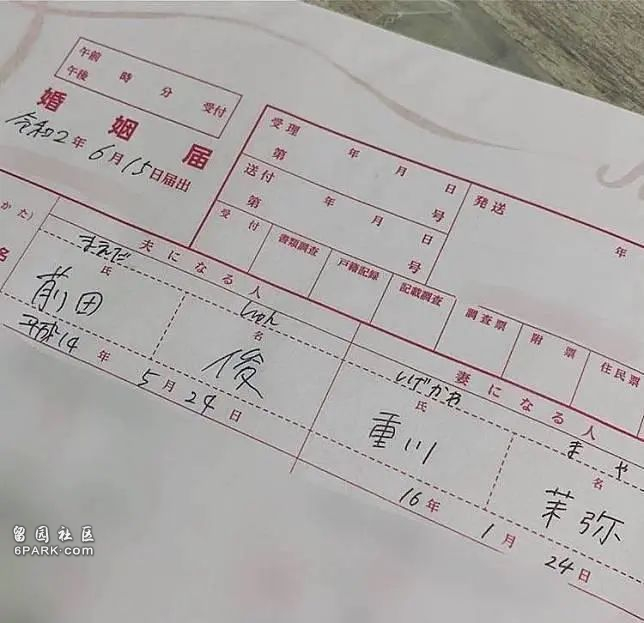 午前
午後 時 分 受付
婚姻届
令和2年6月15日届出
受理 年 月 日
第 号
送付 年 月 日
第 号
発送 年
受付 書類調査 戸籍記録 記載調査 調査票 附票 住民票
かた)
名
夫になる人
まえだ しゅん
氏 名
前田 俊
平成14年 5月 24日
妻になる人
しげかわ まや
氏 名
重川 茉弥
16年 1月 24日
留园社区
6PARK.COM